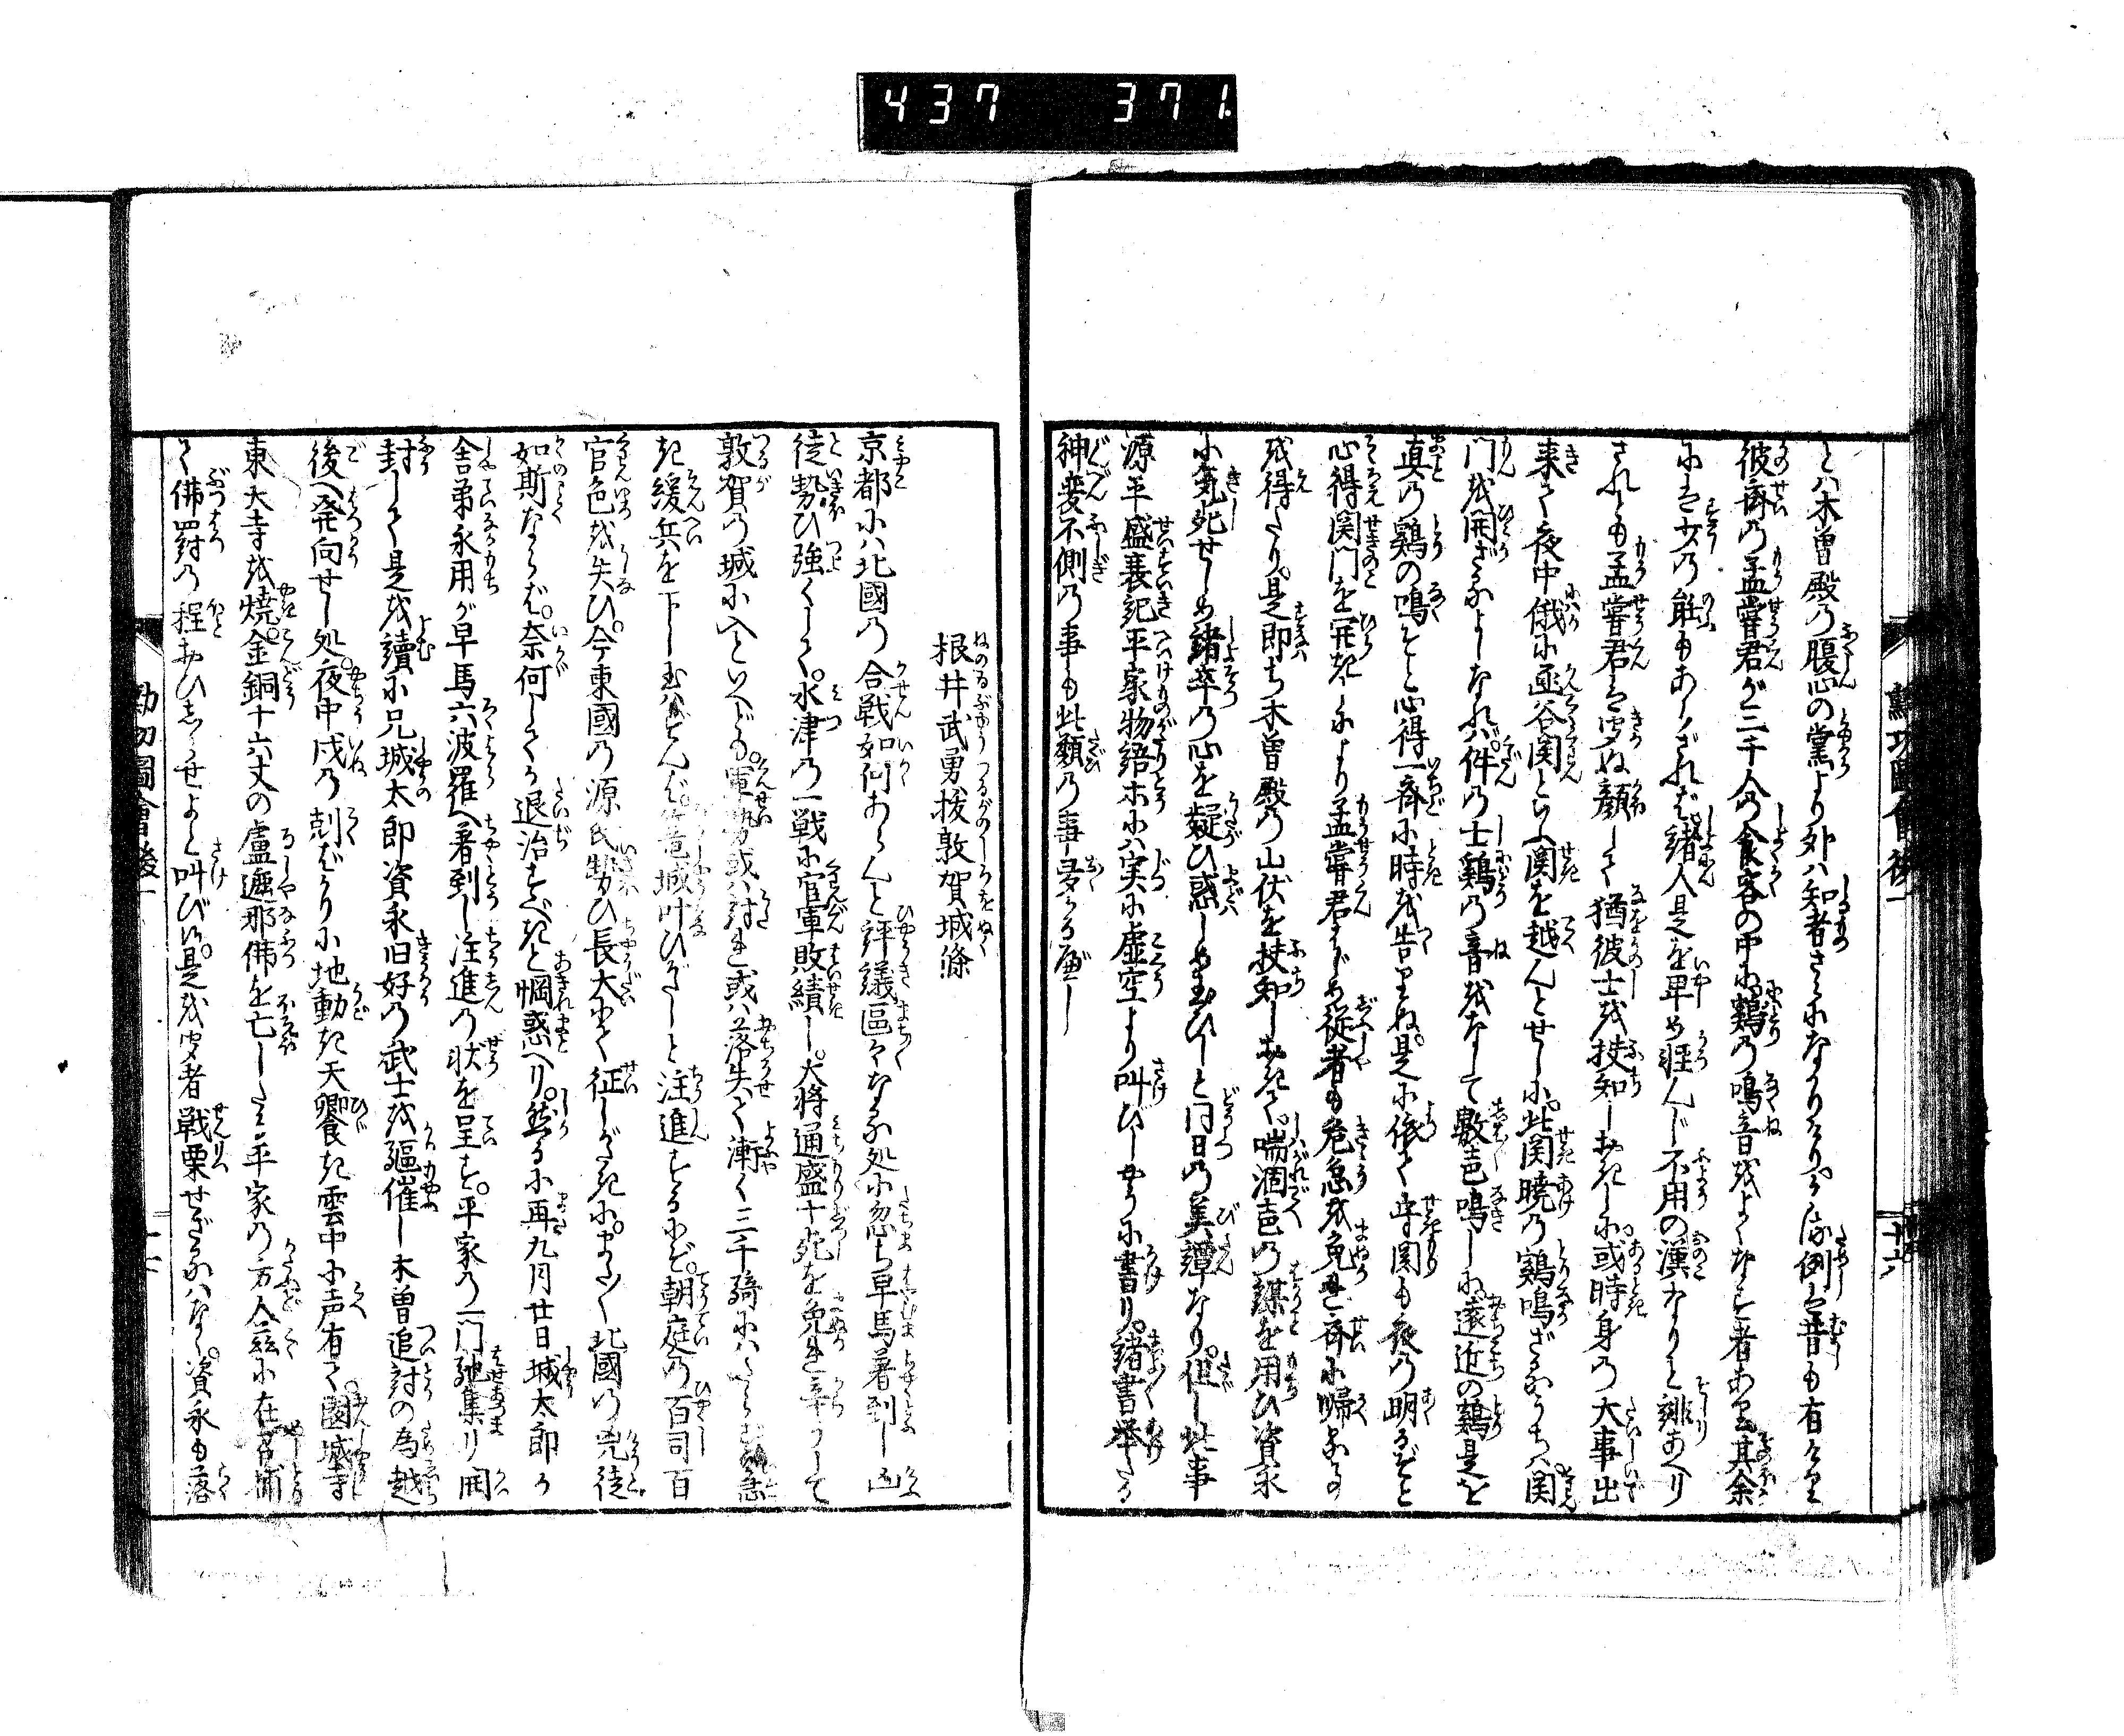 437 371
とハ木曽殿の腹心の黨より外ハ知者さらになかりけり。かゝる例は昔も有けり
彼斎の孟嘗君が三千人の食客の中に鶏の鳴音をよくなす者あり其余
にハさせる能もあらざれバ。緒人是を卑め軽んじ不用の漢なりと誹あへり
されども孟嘗君は聞ぬ顔して猶彼士を扶知しおきしに或時身の大事出
来て夜中俄に函谷関といふ関を越んとせしに。此関暁の鶏鳴ざるうちハ関
門を開ざるよしなれバ。件の士鶏の音をなして数声鳴しに遠近の鶏是を
真の鶏の鳴ぞと心得一斉に時を告わたりぬ。是に依て守関も夜の明るぞと
心得関門を開きしにより孟嘗君はじめ従者も危急を免れ斉に帰る事
を得たり。是即ち木曽殿の山伏を扶知しおきて。喘涸声の謀を用ひ資永
に氣死せしめ緒卒の心を疑ひ惑しめ玉ひしと同日の美譚なり。但し此事
源平盛衰記平家物語ホにハ実に虚空より叫びしやうに書り。緒書挙たる
神変不側の事も此類の事多かる應し
根井武勇抜敦賀城條
京都にハ北國の合戦如何あらんと評議區々なる処に忽ち早馬著到し凶
徒勢ひ強くして。水津の一戦に官軍敗績し。大将通盛十死を免れ辛うして
敦賀の城に入といへども。軍勢或ハ討れ或ハ落失て漸く三千騎にハたらず急
き緩兵を下し玉ハずんバ。篭城叶ひがたしと注進するにぞ。朝庭の百司百
官色を失ひ。今東國の源氏勢ひ長大にて征しがたきに。また北國の兇徒
如斯ならバ。奈何してか退治すべきと惘惑へり。然るに再九月廿日城太郎が
舎弟永用が早馬六波羅へ著到し注進の状を呈す。平家の一門馳集り開
封して是を讀に兄城太郎資永旧好の武士を驅催し木曽追討の為越
後へ発向せし処。夜中戌の刻ばかりに地動き天響き雲中に声有て。園城寺
東大寺を焼。金銅十六丈の盧遮那佛を亡したる平家の方人茲に在召捕
て佛罸の程おもひしらせよと叫び候。是を聞者戦栗せざるハなく。資永も落